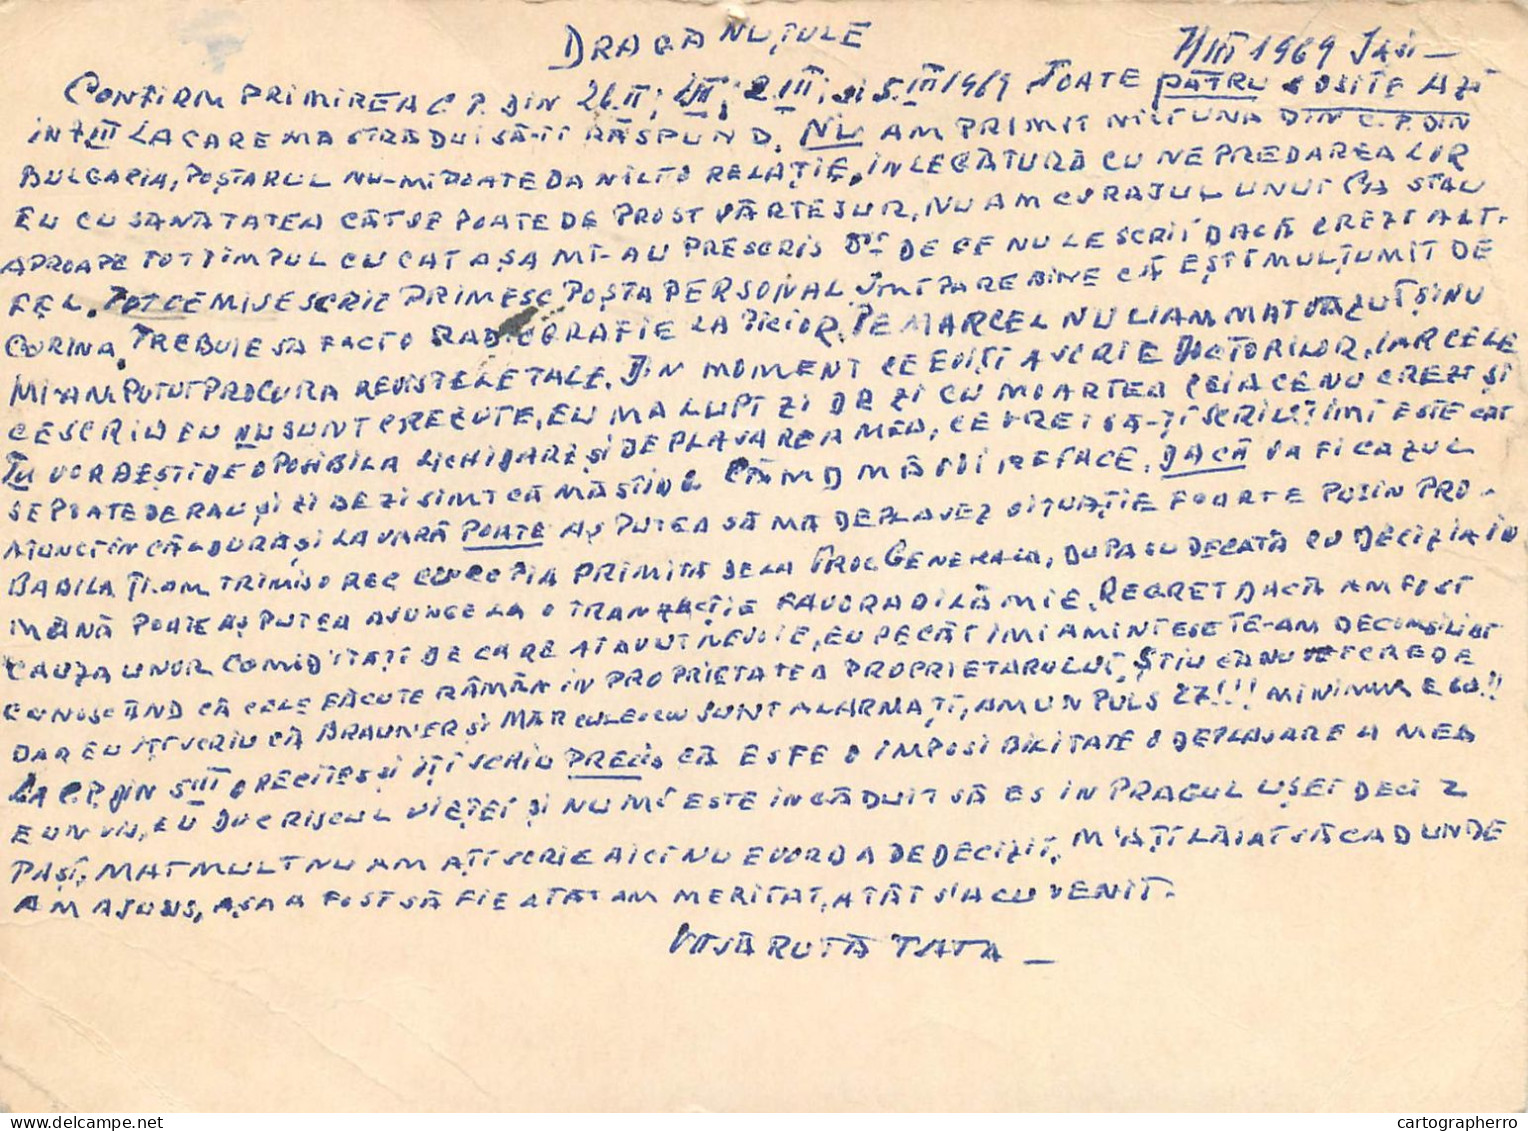 DRAGĂ NUȚULE
7/III 1969 Iași —
CONFIRM PRIMIREA C.P. DIN 26.II; 1.III; 2.III; și 5.III 1969 TOATE PATRU SOSITE AZI
IN 7.III LA CARE MA STRADUI SĂ-TI RĂSPUND. NU AM PRIMIT NICI UNA DIN C.P. DIN
BULGARIA, POȘTARUL NU-MI POATE DA NICI O RELAȚIE, IN LEGĂTURĂ CU NEPREDAREA LOR
EU CU SANATATEA CÂT SE POATE DE PROST VÂRTEJURI, NU AM CURAJUL UNUI PAS STAU
APROAPE TOT TIMPUL CULCAT AȘA MI-AU PRESCRIS DE CE NU LE SCRII DACĂ CREZI ALT-
FEL. TOT CE MI SE SCRIE PRIMESC POȘTA PERSONAL. IMI PARE BINE CĂ EȘTI MULȚUMIT DE
CORINA. TREBUIE SA FAC TO RADIOGRAFIE LA PICIOR. PE MARCEL NU L-AM MAI VĂZUT ȘI NU
MI-AM PUTUT PROCURA REVISTELE TALE. DIN MOMENT CE EDIȚI A SCRIE DOCTORILOR, IAR CELE
CE SCRIU EU NU SUNT CREZUTE, EU MA LUPT ZI DE ZI CU MOARTEA CEIACE NU CREZI ȘI
TU VORBEȘTI DE O POSIBILA LICHIDARE ȘI DEPLASAREA MEA, CE VREI SĂ-ȚI SCRIU? IMI ESTE CÂT
SE POATE DE RAU ȘI ZI DE ZI SIMT CĂ MĂ STING CÂND MĂ VOI REFACE, DACĂ VA FI CAZUL
ATUNCI IN CĂLDURĂ ȘI LA VARĂ POATE AȘ PUTEA SĂ MA DEPLASEZ SITUAȚIE FOARTE PUȚIN PRO-
BABILA ȚI-AM TRIMIS O REC CU COPIA PRIMITA DE LA PROC GENERALA, DUPA JUDECATĂ CU DECIZIA IN
MÂNĂ POATE AȘ PUTEA AJUNGE LA O TRANZACȚIE FAVORABILĂ MIE. REGRET DACĂ AM FOST
CAUZA UNOR COMODITĂȚI DE CARE AI AVUT NEVOIE, EU PECĂT IMI AMINTESC TE-AM DECONSILIAT
CUNOSCÂND CĂ CELE FĂCUTE RĂMÂN IN PROPRIETATEA PROPRIETARULUI. ȘTIU CĂ NU VEI CREDE
DAR EU IȚI SCRIU CĂ BRAUNER ȘI MĂRCULESCU SUNT ALARMAȚI, AM UN PULS 27!!! MINIMUM E 60!!
LA C.P. DIN 5III O RECITESC ȘI IȚI SCRIU PRECIS CĂ ESTE O IMPOSIBILITATE O DEPLASARE A MEA
E UN VIS, EU DUC RISCUL VIEȚEI ȘI NU MI ESTE INGĂDUIT SĂ ES IN PRAGUL UȘEI DECI 2
PAȘI, MAI MULT NU AM A-ȚI SCRIE AICI NU E VORBA DE DECIZII, M'AȚI LĂSAT SĂ CAD UNDE
AM AJUNS, AȘA A FOST SĂ FIE ATÂT AM MERITAT, ATÂT S'A CUVENIT.
VĂ SĂRUTĂ TATA —
cartographerro